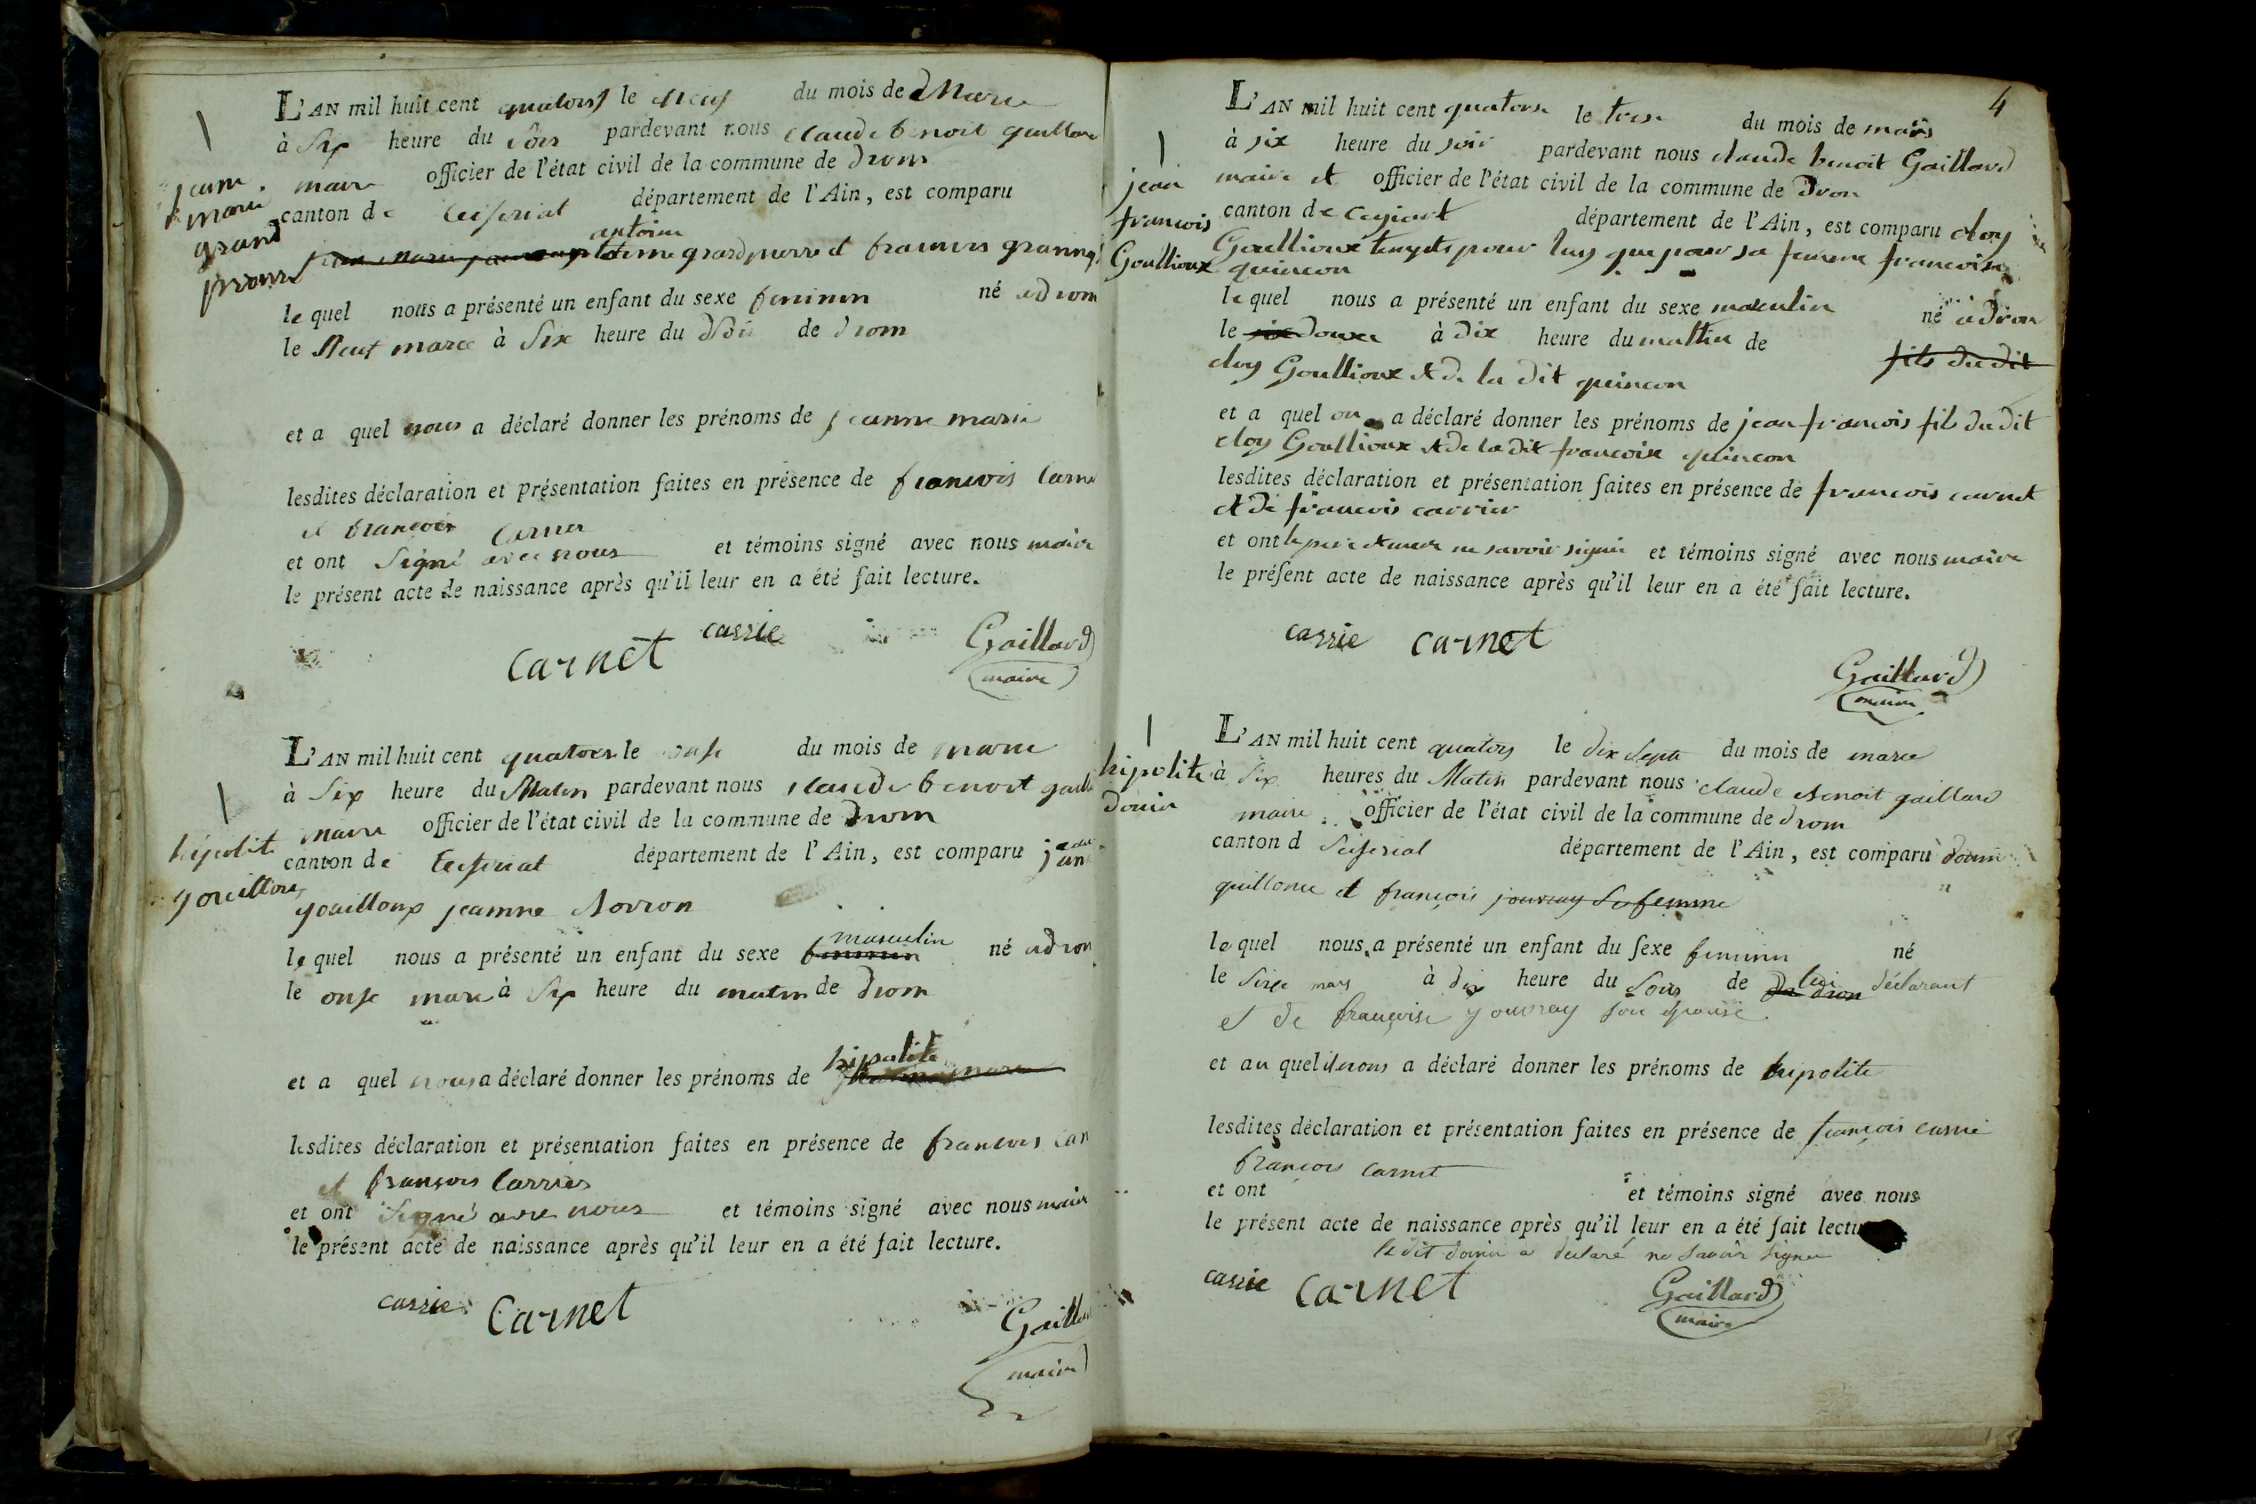 L'AN mil huit cent quatorz le neuf du mois de Marce
à Six heure du Soir pardevant nous claude benoit gaillard
maire officier de l'état civil de la commune de drom
canton de Ceiseriat département de l'Ain, est comparu
antoine
grandpierre et francois
le quel nous a présenté un enfant du sexe feminin né a drom
le Neuf marce à Six heure du Soir de drom
et a quel nous a déclaré donner les prénoms de jeanne marie
lesdites déclaration et présentation faites en présence de francois Carne
et francois Carrier
et ont Signé avec nous et témoins signé avec nous maire
le présent acte de naissance après qu'il leur en a été fait lecture.
carnet cassie Gaillard
maire
jeanne
marie
grand
pierre
L'AN mil huit cent quatorz le onse du mois de marce
à Six heure du Matin pardevant nous claude benoit gailla
maire officier de l'état civil de la commune de Drom
canton de Ceiseriat département de l'Ain, est comparu
gouilloux jeanne
masculin
le quel nous a présenté un enfant du sexe feminin né a drom
le onse marce à Six heure du matin de Drom
hipolite
et a quel nous a déclaré donner les prénoms de
lesdites déclaration et présentation faites en présence de francois Carn
et francois Carrier
et ont Signé avec nous et témoins signé avec nous maire
le présent acte de naissance après qu'il leur en a été fait lecture.
cassie Carnet Gaillard
maire
hipolit
gouilloux
4
L'AN mil huit cent quatorse le trese du mois de mars
à six heure du soir pardevant nous claude benoit Gaillard
maire et officier de l'état civil de la commune de Dron
canton de Ceyseriat département de l'Ain, est comparu cloy
Goullioux tengts pour luy que pour sa femme francoise
quincon
le quel nous a présenté un enfant du sexe masculin né à dron
le six douse à dix heure du mattin de fils du dit
cloy Goullioux et de la dit quincon
et a quel on a déclaré donner les prénoms de jean francois fils du dit
cloy Goullioux et de la dit francoise quincon
lesdites déclaration et présentation faites en présence de francois carnet
et de francois carrier
et ont le pere et mere ne savoir signer et témoins signé avec nous maire
le présent acte de naissance après qu'il leur en a été fait lecture.
cassie carnet
Gaillard
maire
jean
francois
Goullioux
L'AN mil huit cent quatorz le dix Sept du mois de marce
à Six heures du Matin pardevant nous claude benoit gaillard
maire officier de l'état civil de la commune de drom
canton d Seiseriat département de l'Ain, est comparu
et françois jouvray Sa femme
le quel nous a présenté un enfant du sexe feminin né
le Seize mars à dix heure du Soir de lui déclarant
et de françoise jouvray son épouse
et au quel il nous a déclaré donner les prénoms de hipolite
lesdites déclaration et présentation faites en présence de françois carrié
francois carnet
et ont et témoins signé avec nous
le présent acte de naissance après qu'il leur en a été fait lectu
le dit douin a déclaré ne savoir signer
cassie Carnet Gaillard
maire
hipolite
douin